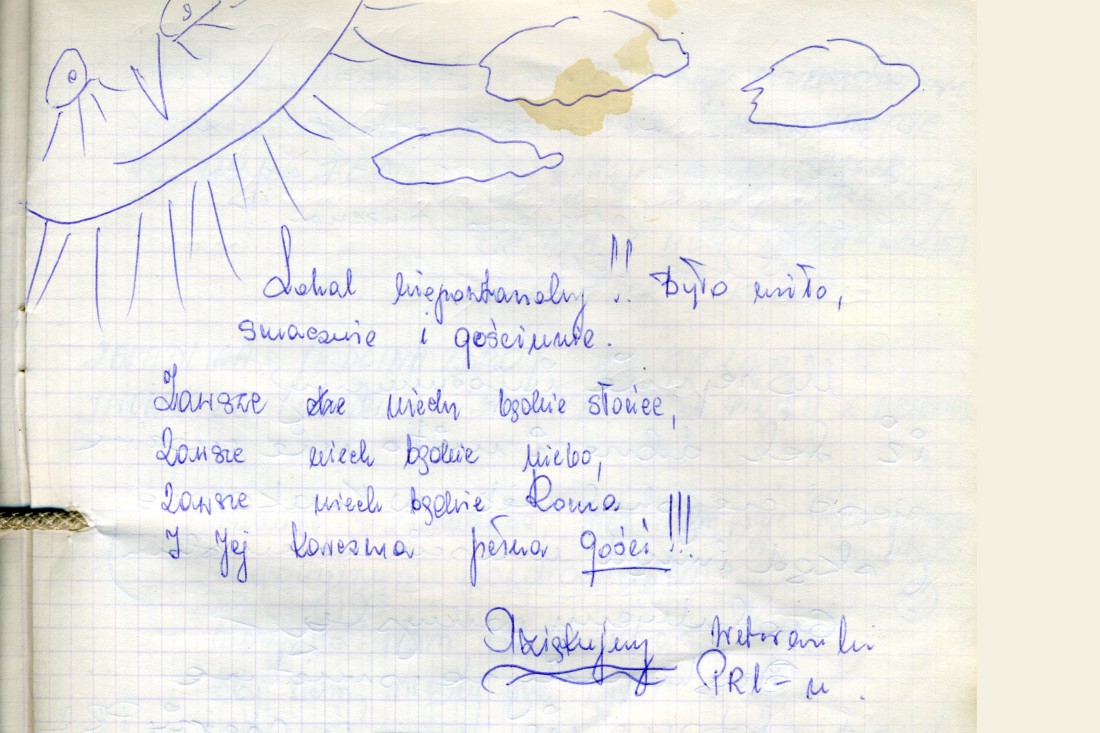 Lokal niepowtarzalny!! Było miło,
smacznie i gościnnie.
Zawsze niech będzie słońce,
Zawsze niech będzie niebo,
Zawsze niech będzie Roma
I Jej karczma pełna gości!!!
Dziękujemy weteranki
PRL-u.